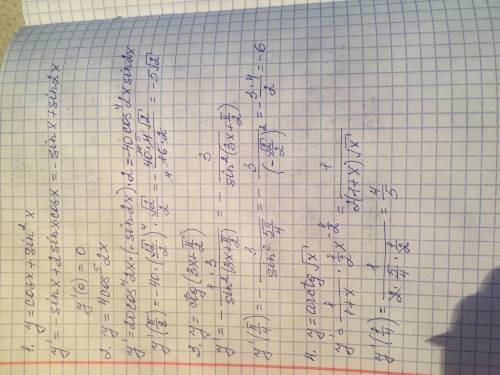 1. y = cosx + sin² x
y' = -sin x + 2 sin x cos x = -sin x + sin 2x
y'(0) = 0
2. y = 4 cos⁵ 2x
y' = 20 cos⁴ 2x · (-sin 2x) · 2 = -40 cos⁴ 2x sin 2x
y'(π/8) = -40 · (√2/2)⁴ · √2/2 = - 40·4√2/16·2 = -5√2
3. y = ctg(3x + π/2)
y' = - 1·3/sin²(3x + π/2) = - 3/sin²(3x + π/2)
y'(π/4) = - 3/sin² 5π/4 = - 3/(-√2/2)² = - 3·4/2 = -6
4. y = arctg √x
y' = 1/1+x · 1/2 x^-1/2 = 1/2(1+x)√x
y'(1/4) = 1/2 · 5/4 · 1/2 = 4/5